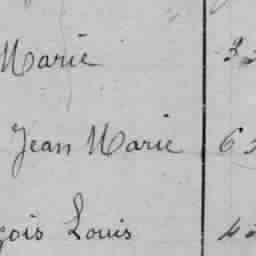 Marie 32
Jean Marie 6
çois Louis 4